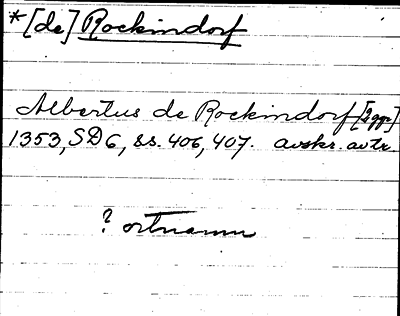 *[de] Rockindorf
Albertus de Rockindorf [2ggr]
1353, SD 6, ss. 406, 407. avskr. avtr.
? ortnamn